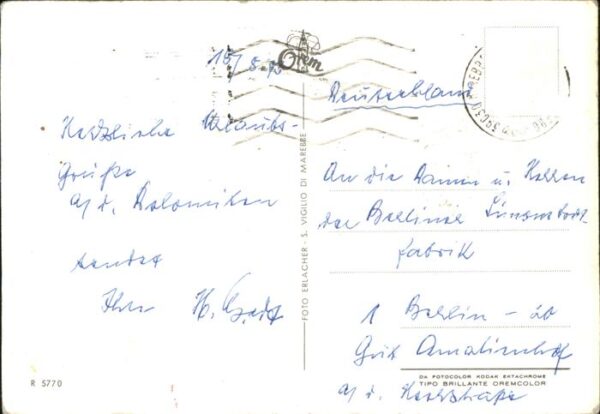 15/8-73
Orem
Deutschland
Herzliche Urlaubs-
Grüße
a/d. Dolomiten
sendet
Ihr H.
An die Damen u. Herren
der Berliner
fabrik
1 Berlin - 20
Gut Amalienhof
a/d. Heerstraße
FOTO ERLACHER - S. VIGILIO DI MAREBBE
R 5770
DA FOTOCOLOR KODAK EKTACHROME
TIPO BRILLANTE OREMCOLOR